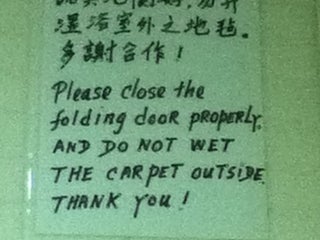 浴室外之地毡。
多謝合作!
Please close the
folding door properly.
AND DO NOT WET
THE CARPET OUTSIDE.
THANK YOU!